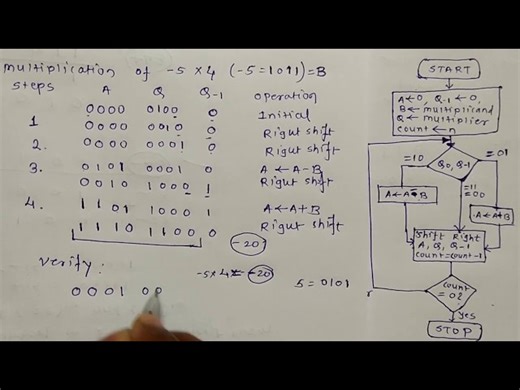 multiplication of -5 x 4 (-5 = 1011) = B
steps A Q Q-1 operation
0000 0100 0 Initial
1 0000 0010 0 Right shift
2. 0000 0001 0 Right shift
3. 0101 0001 0 A ← A-B
0010 1000 1 Right shift
4. 1101 1000 1 A ← A+B
1110 1100 0 Right shift
-20
Verify:
-5x4 = -20
5 = 0101
0001 00
START
A←0, Q-1 ←0,
B← multiplicand
Q ← multiplier
count ← n
Q0, Q-1
=10
=01
=11
=00
A←A-B
A←A+B
Shift Right
A, Q, Q-1
count=count-1
count
= 0?
yes
STOP